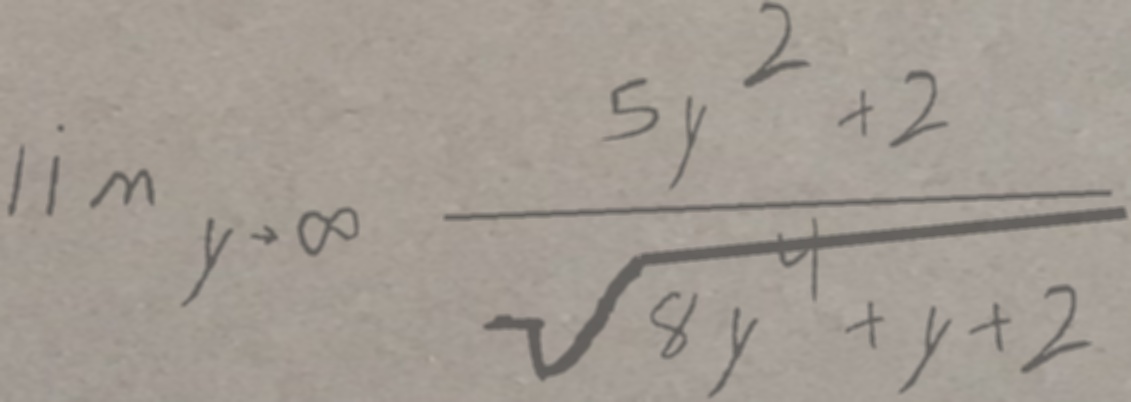 \lim_{y \to \infty} \frac{5y^2+2}{\sqrt{8y^4+y+2}}